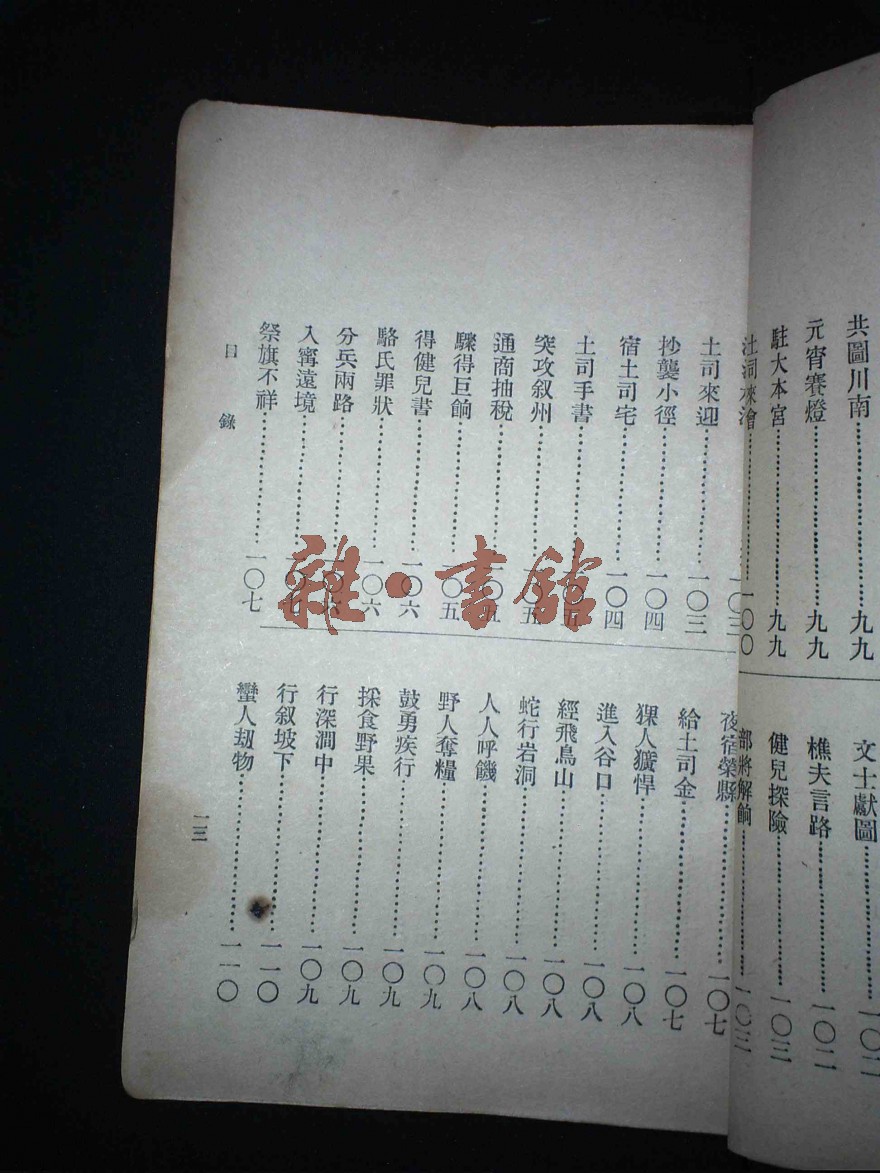 共圖川南⋯⋯九九
元宵賽燈⋯⋯九九
駐大本宮⋯⋯九九
⋯⋯一〇〇
文士獻圖⋯⋯一〇二
樵夫言路⋯⋯一〇二
健兒探險⋯⋯一〇三
部將解餉⋯⋯一〇三
⋯⋯一〇三
土司來迎⋯⋯一〇三
抄襲小徑⋯⋯一〇四
宿土司宅⋯⋯一〇四
土司手書⋯⋯一〇五
突攻叙州⋯⋯一〇五
通商抽稅⋯⋯一〇五
驟得巨餉⋯⋯一〇五
得健兒書⋯⋯一〇六
駱氏罪狀⋯⋯一〇六
分兵兩路⋯⋯一〇六
入甯遠境⋯⋯一〇七
祭旗不祥⋯⋯一〇七
夜宿榮縣⋯⋯一〇七
給土司金⋯⋯一〇七
猓人獷悍⋯⋯一〇八
進入谷口⋯⋯一〇八
經飛鳥山⋯⋯一〇八
蛇行岩洞⋯⋯一〇八
人人呼饑⋯⋯一〇八
野人奪糧⋯⋯一〇九
鼓勇疾行⋯⋯一〇九
採食野果⋯⋯一〇九
行深澗中⋯⋯一〇九
行叙坡下⋯⋯一一〇
蠻人刼物⋯⋯一一〇
目錄
一三
雜·書館